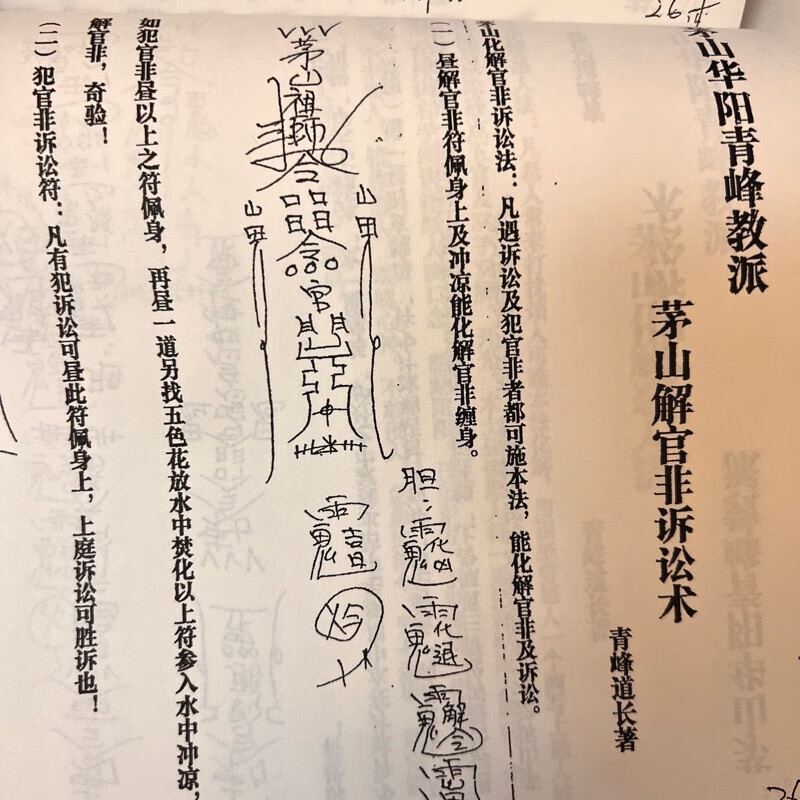 茅山华阳青峰教派
茅山解官非诉讼术
青峰道长著
茅山化解官非诉讼法：凡遇诉讼及犯官非者都可施本法，能化解官非及诉讼。
(一) 昼解官非符佩身上及冲凉能化解官非缠身。
胆：
茅山祖師
令
山
山
如犯官非昼以上之符佩身，再昼一道另找五色花放水中焚化以上符参入水中冲凉，
解官非，奇验！
(二) 犯官非诉讼符：凡有犯诉讼可昼此符佩身上，上庭诉讼可胜诉也！